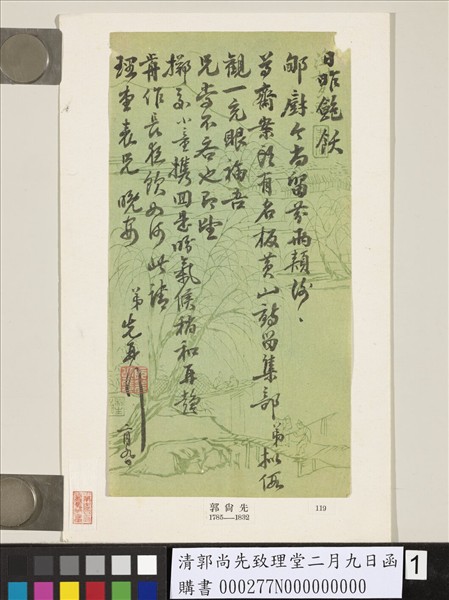 日昨飽飫
郇廚今尚留芬兩頰謝
尊齋案頭有名板黃山詩留集部弟擬假
觀一充眼福吾
兄當不吝也即望
擲交小童攜回是盼氣候稍和再趨
齋作長夜飲如何此請
理堂老兄 晚安
弟先再
二月九日
郭尚先
1785—1832
119
清郭尚先致理堂二月九日函
購書 000277N000000000
1